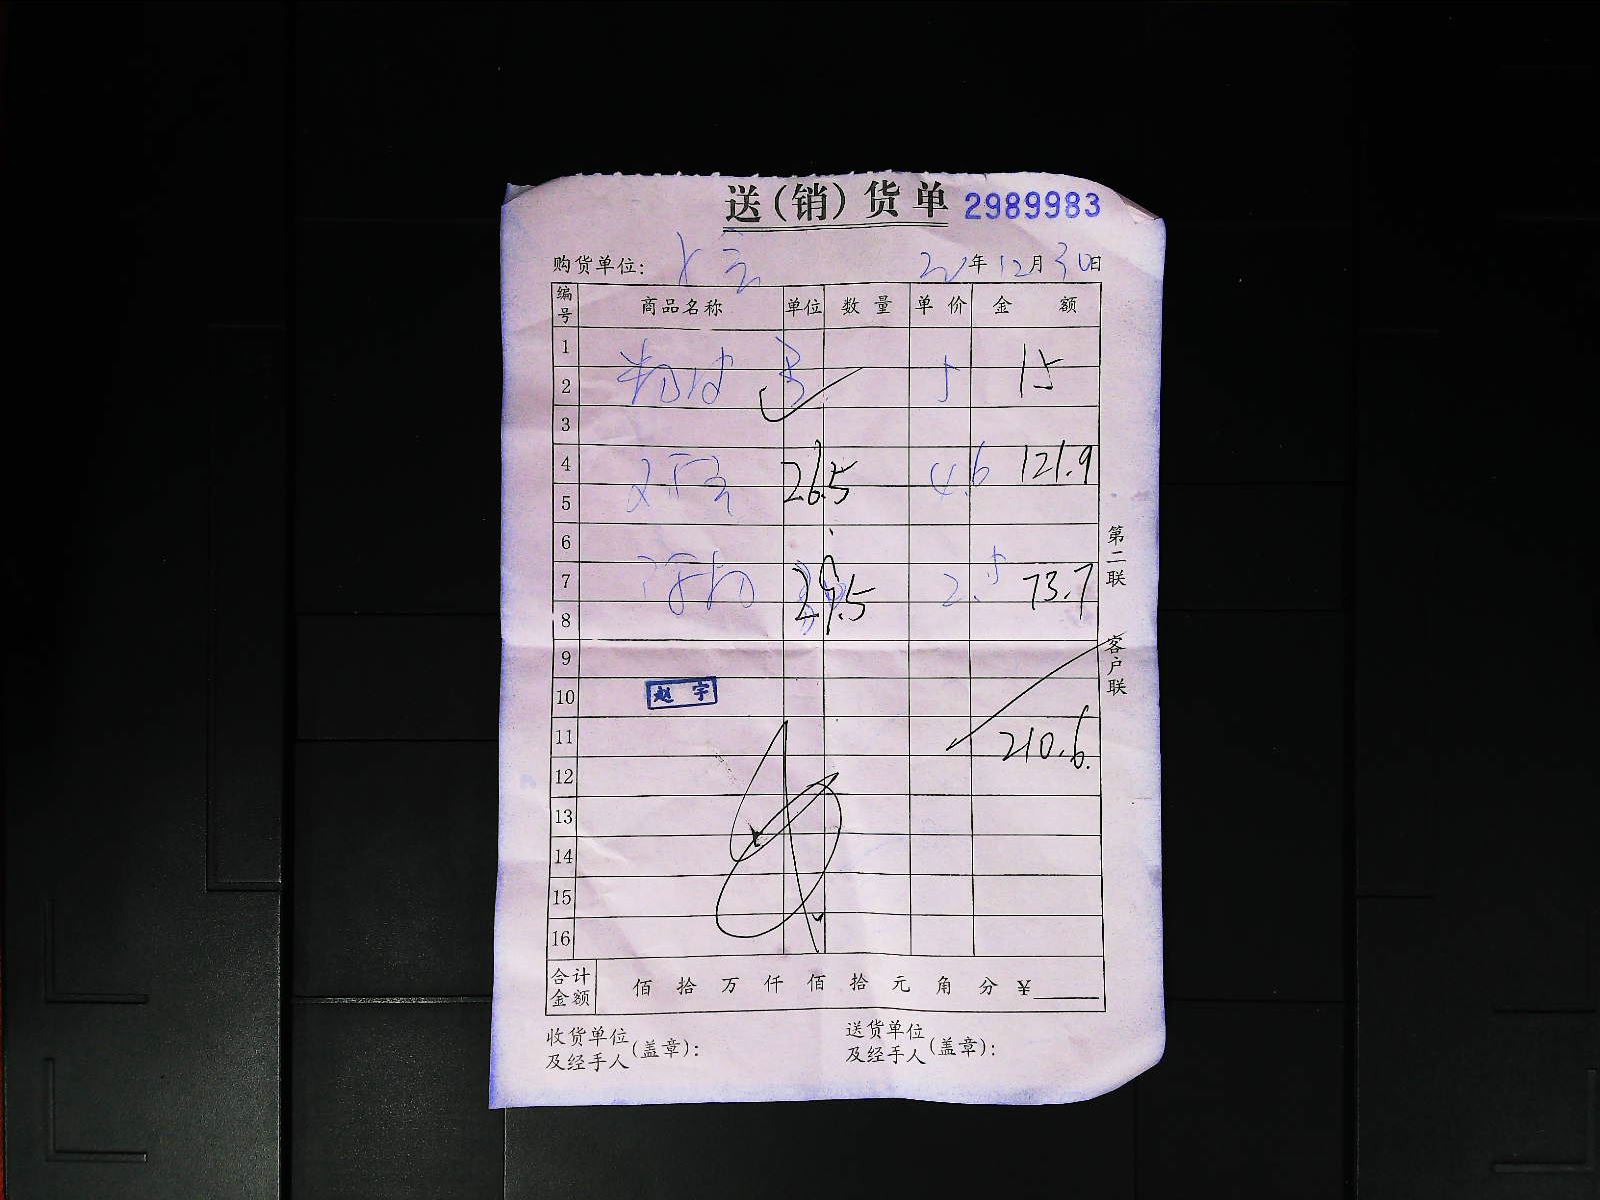 送(销)货单 2989983
购货单位: 年12月30日
编号 商品名称 单位 数量 单价 金额
1
2 5 15
3
4 26.5 4.6 121.9
5
6
7 29.5 2.5 73.7
8
9
10 赵宇
11 210.6
12
13
14
15
16
合计金额 佰拾万仟佰拾元角分¥
收货单位及经手人(盖章):
送货单位及经手人(盖章):
第二联 客户联